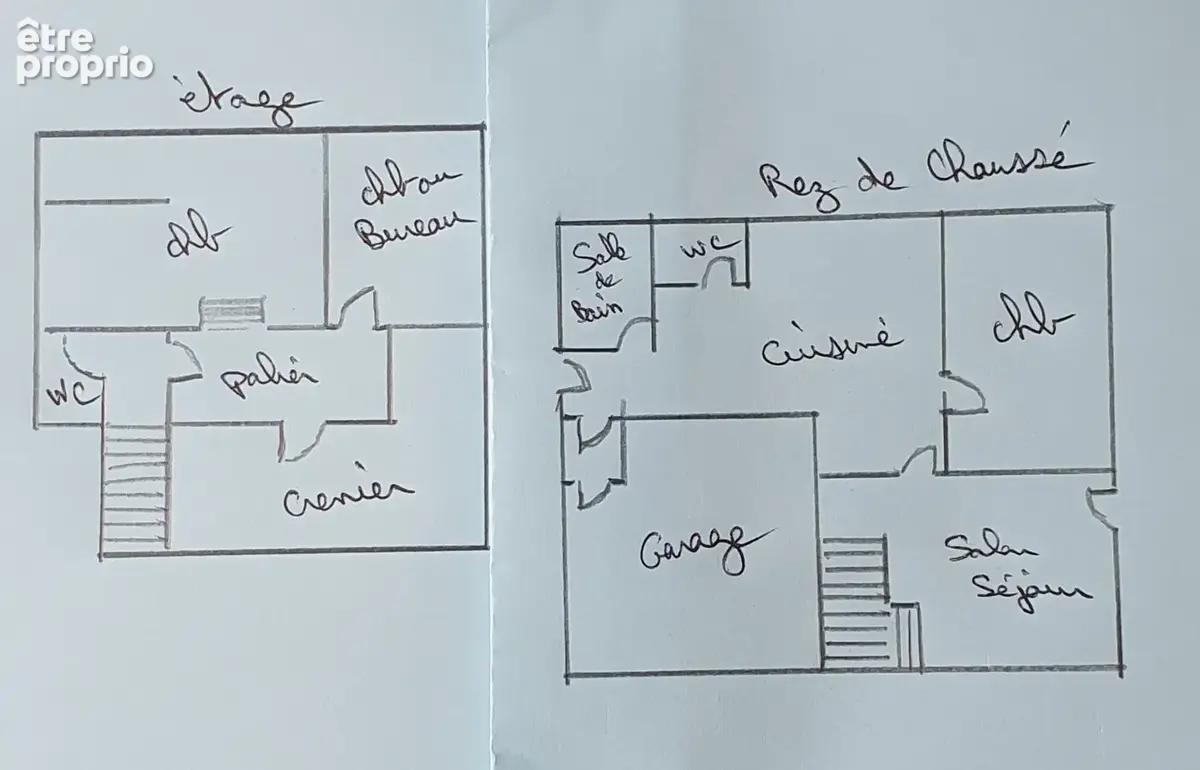 être
proprio
étage
chb ou
Bureau
chb
WC
palier
Grenier
Rez de Chaussé
Salle
de
Bain
WC
Cuisine
chb
Garage
Salon
Séjour